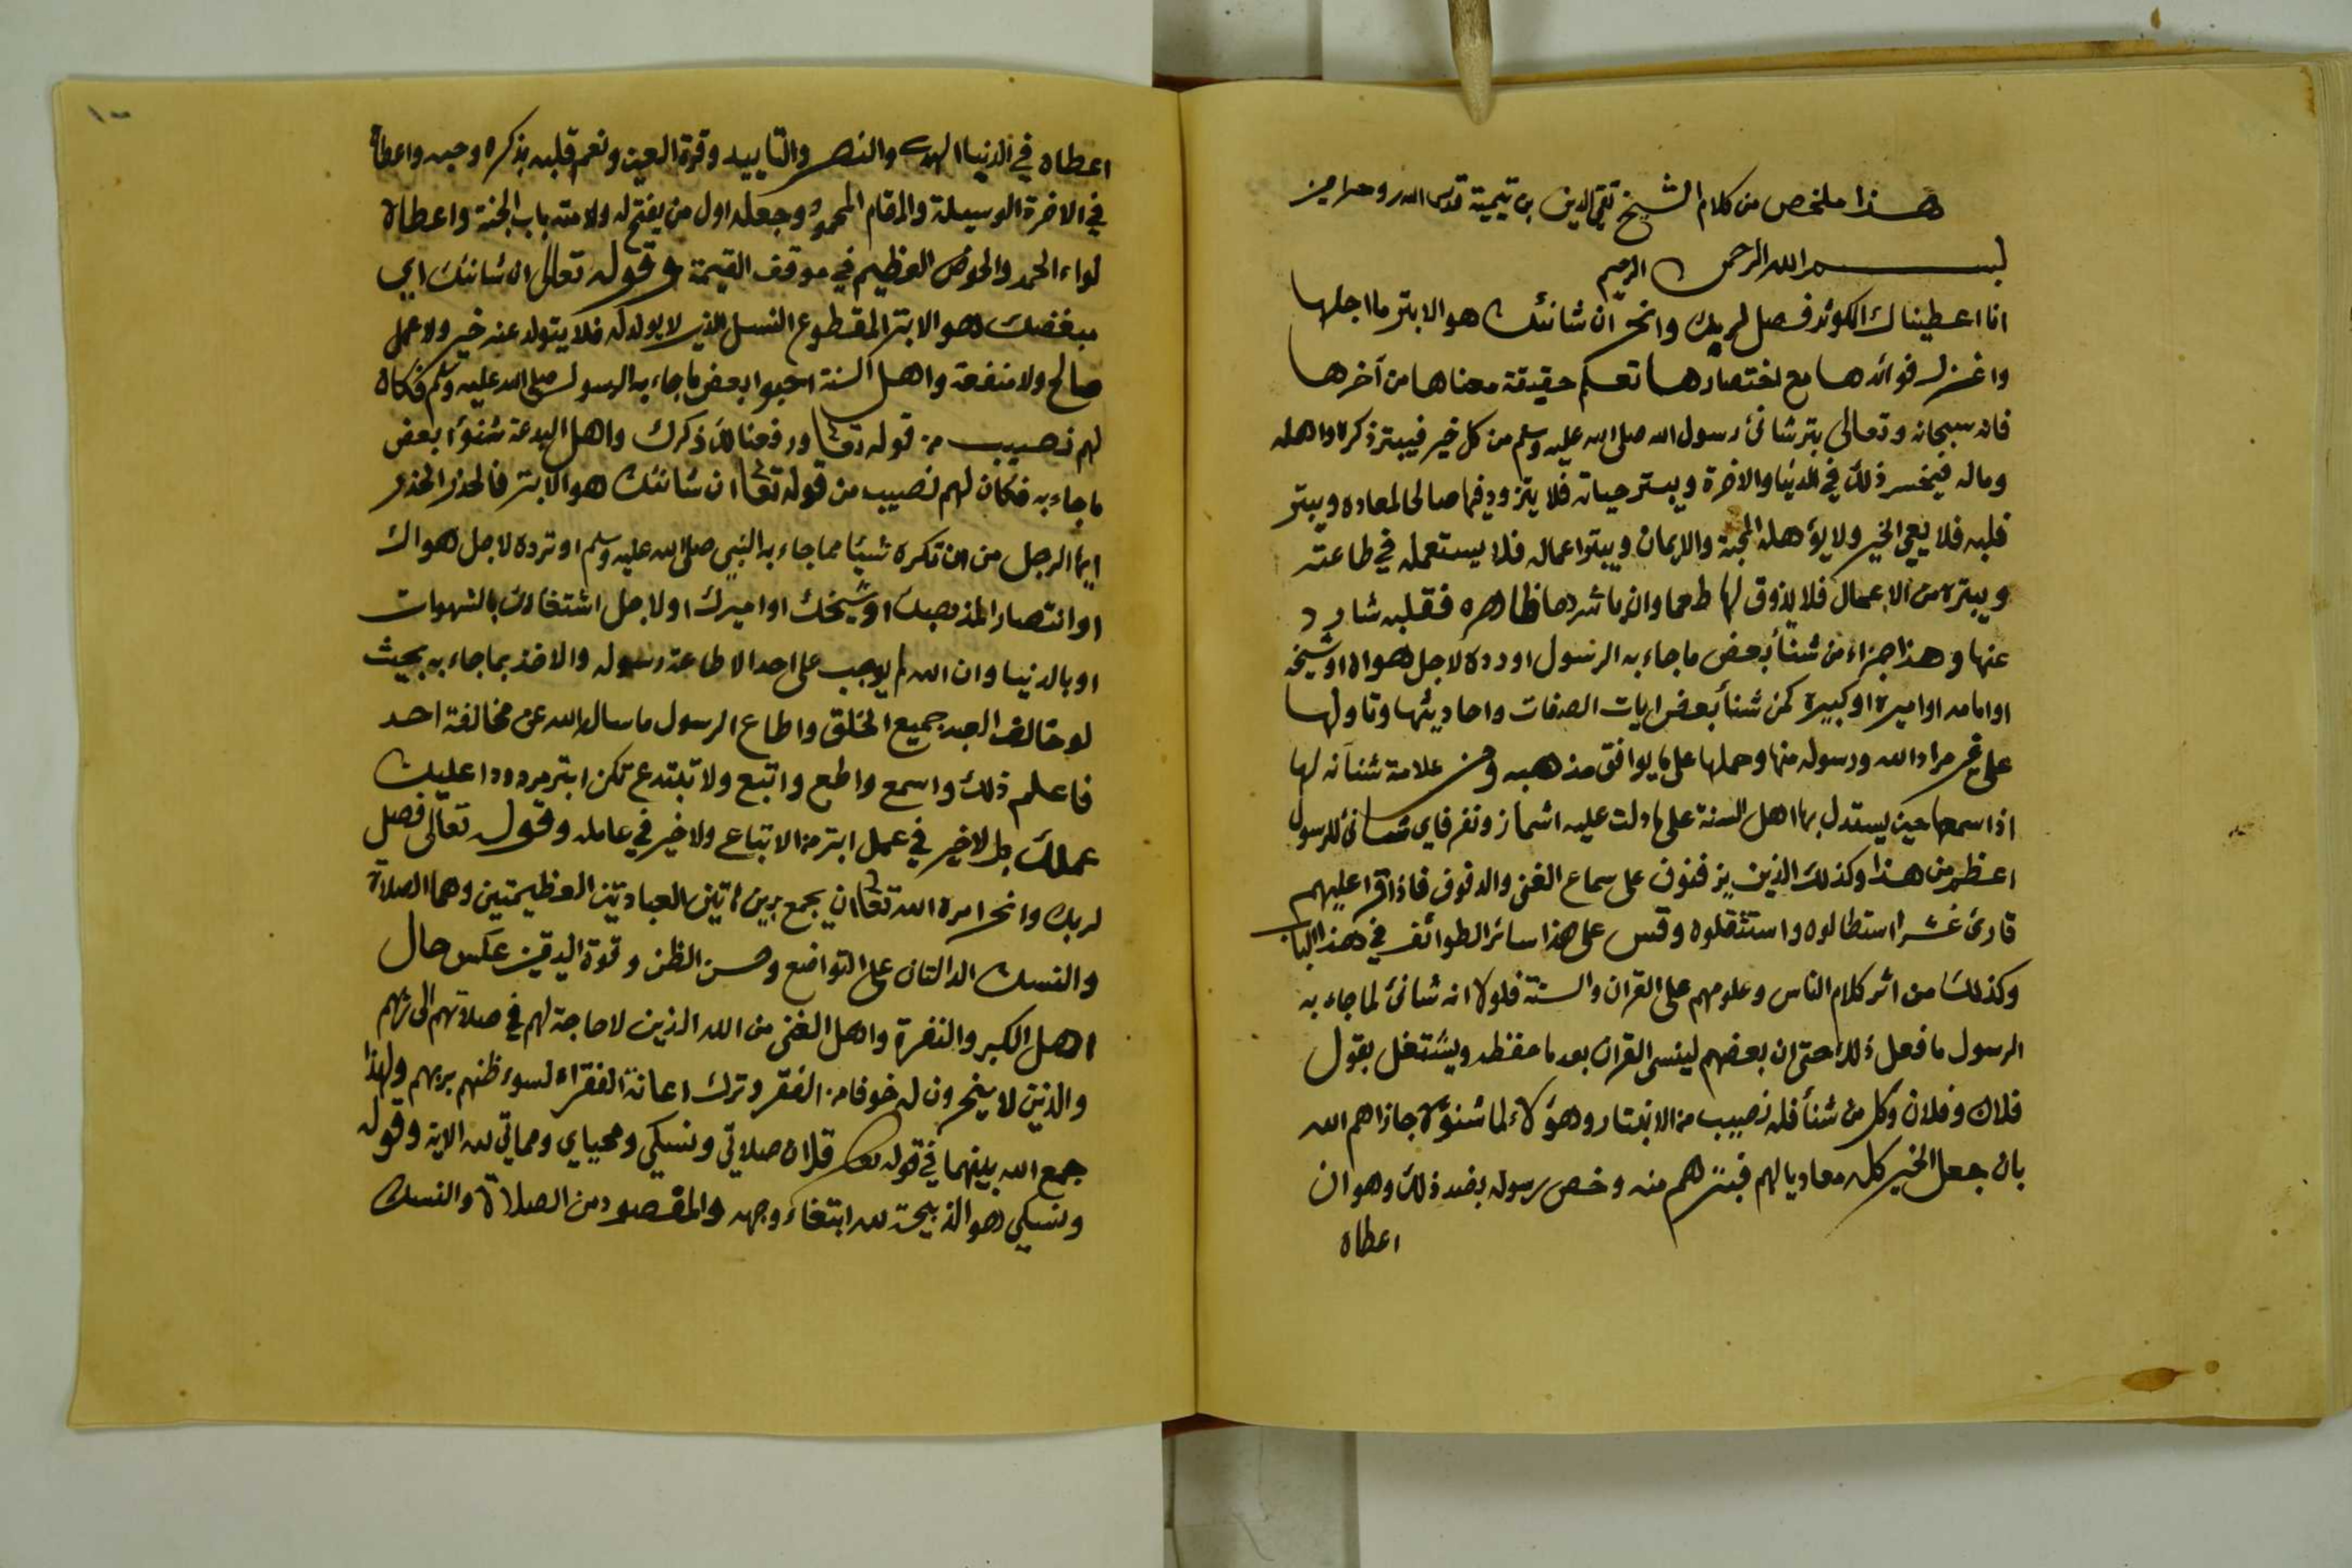 هذا ملخص من كلام الشيخ تقي الدين بن تيمية قدس الله روحه امين
بسم الله الرحمن الرحيم
انا اعطيناك الكوثر فصل لربك وانحر ان شانئك هو الابتر ما اجلها
واغزر فوائدها مع اختصارها تعلم حقيقة معناها من آخرها
فانه سبحانه وتعالى بتر شانئ رسول الله صلى الله عليه وسلم من كل خير فيبتر ذكره واهله
وماله فيخسر ذلك في الدنيا والاخرة ويبتر حياته فلا يتزود فيها صالحا لمعاده ويبتر
قلبه فلا يعي الخير ولا يؤهله المحبة والايمان ويبتر اعماله فلا يستعمله في طاعته
ويبتره من الاعمال فلا يذوق لها طعما وان باشرها ظاهره فقلبه شارد
عنها وهذا جزاء من شنأ بعض ما جاء به الرسول او رده لاجل هواه او شيخه
او امامه او اميره او كبيره كمن شنأ بعض ايات الصفات واحاديثها وتاولها
على غير مراد الله ورسوله منها وحملها على ما يوافق مذهبه ومن علامة شنآنه لها
اذا سمعها حين يستدل بها اهل السنة على ما دلت عليه اشمأز ونفر فاي شانئ للرسول
اعظم من هذا وكذلك الذين يزفنون على سماع الغنى والدفوف فاذا قرا عليهم
قارئ عشرا استطالوه واستثقلوه وقس على هذا سائر الطوائف في هذا الباب
وكذلك من اثر كلام الناس وعلومهم على القران والسنة فلولا انه شانئ لما جاء به
الرسول ما فعل ذلك حتى ان بعضهم لينسى القران بعد ما حفظه ويشتغل بقول
فلان وفلان وكل من شنأ فله نصيب من الانبتار وهؤلاء لما شنؤه جازاهم الله
بان جعل الخير كله معاديا لهم فبترهم منه وخص رسوله بضد ذلك وهو ان
اعطاه
اعطاه في الدنيا الهدى والنصر والتاييد وقرة العين ونعم قلبه بذكره وحبه واعطاه
في الاخرة الوسيلة والمقام المحمود وجعله اول من يفتح له ولامته باب الجنة واعطاه
لواء الحمد والحوض العظيم في موقف القيمة وقوله تعالى ان شانئك اي
مبغضك هو الابتر المقطوع النسل الذي لا يولد له فلا يتولد عنه خير ولا عمل
صالح ولا منفعة واهل السنة احبوا بعض ما جاء به الرسول صلى الله عليه وسلم فكان
لهم نصيب من قوله تعا ورفعنا لك ذكرك واهل البدعة شنؤا بعض
ما جاء به فكان لهم نصيب من قوله تعا ان شانئك هو الابتر فالحذر الحذر
ايها الرجل من ان تكره شيئا مما جاء به النبي صلى الله عليه وسلم او ترده لاجل هواك
او انتصارا لمذهبك او شيخك او اميرك او لاجل اشتغالك بالشهوات
او بالدنيا وان الله لم يوجب على احد الا طاعة رسوله والاخذ بما جاء به بحيث
لو خالف العبد جميع الخلق واطاع الرسول ما ساله الله عن مخالفة احد
فاعلم ذلك واسمع واطع واتبع ولا تبتدع تكن ابتر مردودا عليك
عملك بل لا خير في عمل ابتر من الاتباع ولا خير في عامله وقوله تعالى فصل
لربك وانحر امره الله تعا ان يجمع بين هاتين العبادتين العظيمتين وهما الصلاة
والنسك الدالتان على التواضع وحسن الظن وقوة اليقين عكس حال
اهل الكبر والنفرة واهل الغنى من الله الذين لا حاجة لهم في صلاتهم الى ربهم
والذين لا ينحرون له خوفا من الفقر وترك اعانة الفقراء لسوء ظنهم بربهم ولهذا
جمع الله بينهما في قوله تعا قل ان صلاتي ونسكي ومحياي ومماتي لله الاية وقوله
ونسكي هو الذبيحة لله ابتغاء وجهه والمقصود من الصلاة والنسك